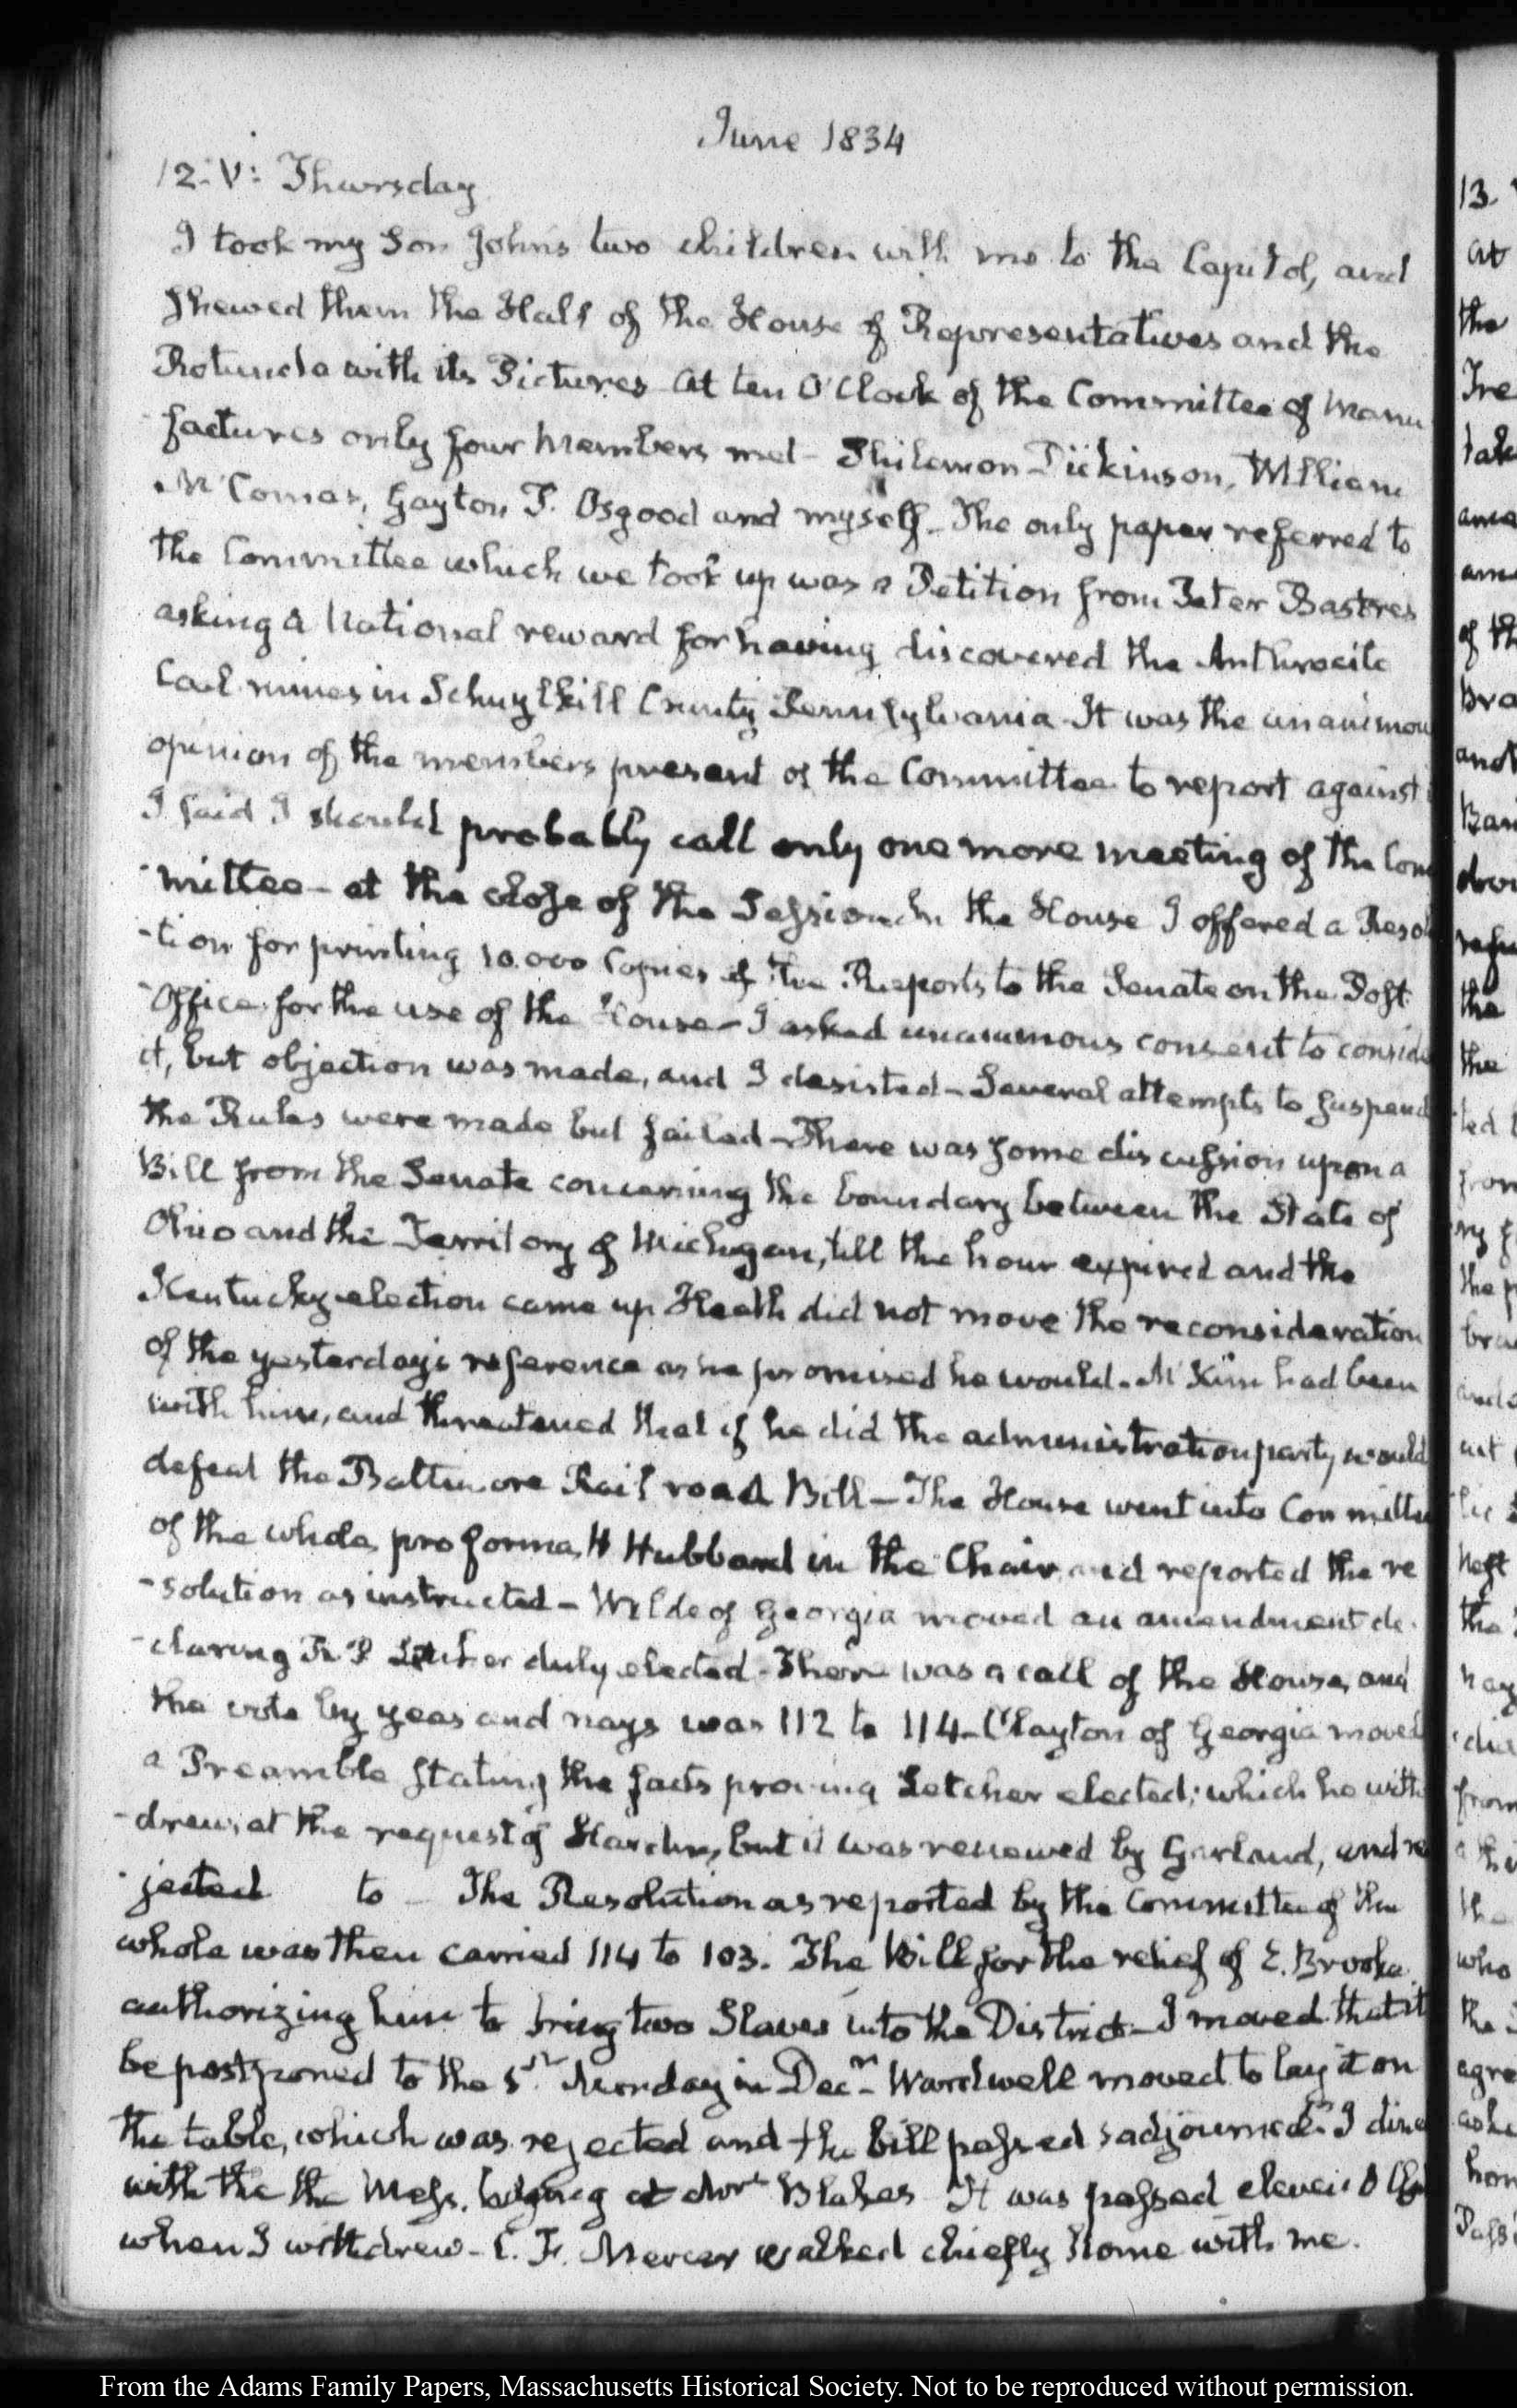 June 1834
12. V: Thursday
I took my Son John's two children with me to the Capitol, and
shewed them the Hall of the House of Representatives and the
Rotunda with its Pictures At ten O'Clock of the Committee of Manu
-factures only four Members met – Philemon Dickinson, William
McComas, Gayton P. Osgood and myself – The only paper referred to
the Committee which we took up was a Petition from Peter Bastres
asking a National reward for having discovered the Anthracite
Coal mines in Schuylkill County Pennsylvania – It was the unanimou
opinion of the members present of the Committee to report against
I said I should probably call only one more meeting of the Com
-mittee – at the close of the Session. In the House I offered a Resol
-tion for printing 10.000 Copies of the Reports to the Senate on the Post
-Office for the use of the House – I asked unanimous consent to conside
it, but objection was made, and I desisted – Several attempts to suspend
the Rules were made but failed – There was some discussion upon a
Bill from the Senate concerning the boundary between the State of
Ohio and the Territory of Michigan, till the hour expired and the
Kentucky election came up Heath did not move the reconsideration
of the yesterday's reference as he promised he would. McKim had been
with him, and threatened that if he did the administration party would
defeat the Baltimore Rail road Bill – The House went into Committe
of the whole, pro forma, H Hubbard in the Chair, and reported the re
-solution as instructed – Wilde of Georgia moved an amendment de
-claring R. P Letcher duly elected – There was a call of the House, and
the vote by yeas and nays was 112 to 114 – Clayton of Georgia moved
a Preamble stating the facts proving Letcher elected; which he with
-drew, at the request of Hardin, but it was renewed by Garland, and re
-jected to – The Resolution as reported by the Committee of the
whole was then carried 114 to 103. The Bill for the relief of E. Brooke
authorizing him to bring two Slaves into the District – I moved that it
be postponed to the 1st Monday in Decr – Wardwell moved to lay it on
the table, which was rejected and the bill passed & adjourned. I dine
with the the Mess. lodging at Mrs Blakes It was passed eleven O Clo
when I withdrew – C. F. Mercer walked chiefly Home with me.
13.
at
the
of th
the
the
the
who
agre
From the Adams Family Papers, Massachusetts Historical Society. Not to be reproduced without permission.